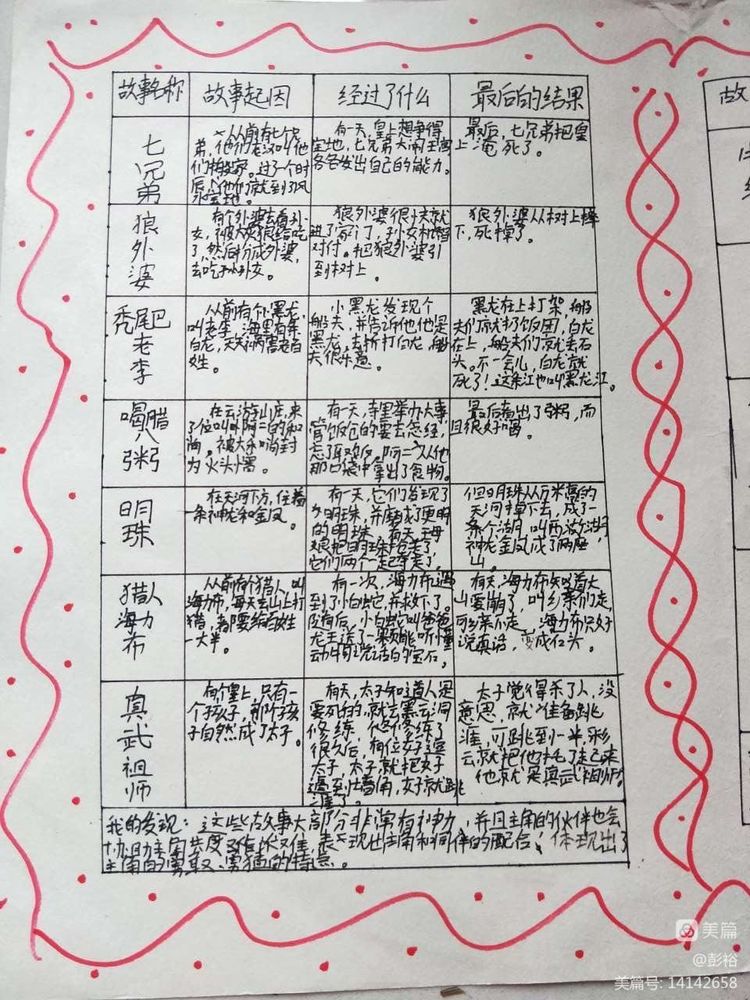 故事名称 故事起因 经过了什么 最后的结果
七兄弟
从前有七个兄
弟,他们
过了一个时
有一天,皇上想争得
宝地,七兄弟大闹王宫
各各发出自己的能力。
最后,七兄弟把皇
上淹死了。
狼外婆
有个外婆去看孙
女,被大灰狼给吃
了,然后扮成外婆,
去吃孙女。
狼外婆很快就
进了家门,孙女机智
对付。把狼外婆引
到树上。
狼外婆从树上掉
下,死掉了。
秃尾巴老李
从前有个小黑龙,
叫老李,海里有条
白龙,天天祸害老百
姓。
小黑龙发现个
船夫,并告诉他他是
黑龙,去折打白龙,船
夫很乐意。
黑龙在上打架,船
夫们就扔饭团,白龙
在上,船夫们就丢石
头。不一会儿,白龙就
死了!这条江也叫黑龙江。
喝腊八粥
在云游山庄,来
了位叫阿二的和
尚。被大和尚封
为火头小厮。
有一天,寺里举办大事,
管饭仓的要去念经,
忘了取饭。阿二从他
那口袋中拿出了食物。
最后煮出了粥,而
且很好喝。
明珠
在天河下方,住着
一条神龙和金凤。
有一天,它们发现了
个明珠,并磨成了更明
的明珠。有天,王母
娘把明珠抢走了,
它们两个一起夺走了。
但明珠从万米高的
天河掉下去,成了一
条个湖,叫西湖
神龙金凤成了两座
山。
猎人海力布
从前有个猎人,叫
海力布,每天去山上打
猎,都要给百姓
一大半。
有一次,海力布遇
到了小白蛇,并救下了。
小白蛇叫爸爸
龙王送了一颗能听懂
动物说话的宝石。
有天,海力布知道大
山要崩了,叫乡亲们走,
可乡亲不走,海力布只好
说真话,变成石头。
真武祖师
有个皇上,只有一
个孩子,那个孩
子自然成了太子。
有天,太子知道人是
要死的,就去黑云洞
修练,他修练了
很久后,有位女子逗
太子,太子就把女子
逼到墙角,女子就跳
涯了。
太子觉得杀了人,没
意思,就准备跳
涯,可跳到一半,彩
云就把他托了起来
他就是真武祖师。
我的发现:这些故事大部分非常有神力,并且主角的伙伴也会
协助主角共度难,表现出主角和同伴的配合,体现出了
主角的勇敢、勇猛的特点。
美篇
@彭裕
美篇号: 14142658
故